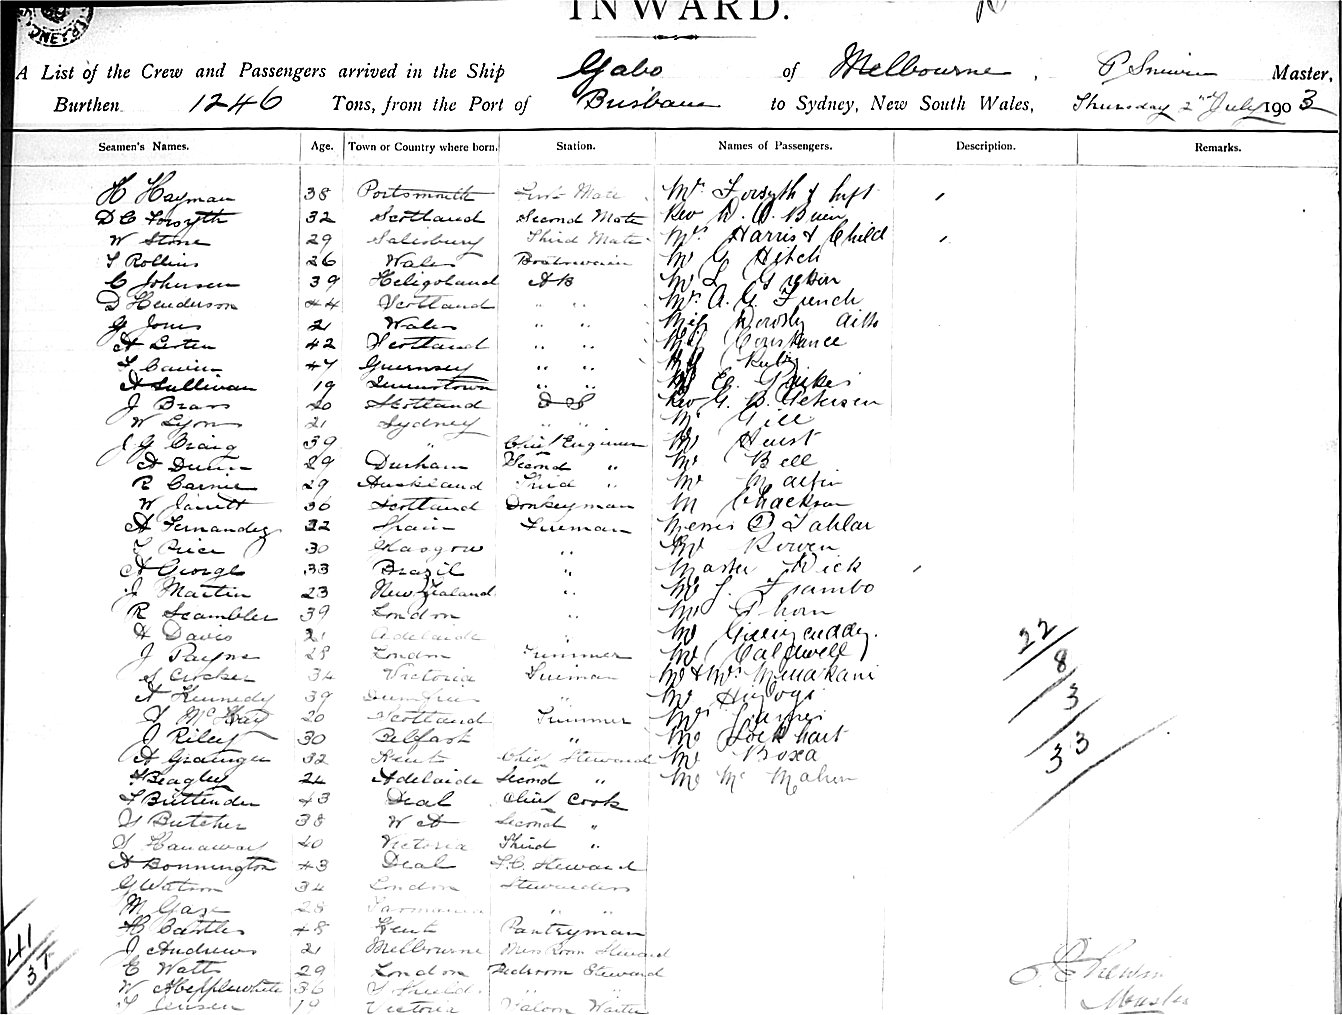 INWARD.
A List of the Crew and Passengers arrived in the Ship Gabo of Melbourne, Master,
Burthen 1246 Tons, from the Port of Brisbane to Sydney, New South Wales, Thursday 2nd July 1903
Seamen's Names. Age. Town or Country where born. Station. Names of Passengers. Description. Remarks.
H Hayman 38 Portsmouth First Mate Mrs Forsyth & Inft
D C Forsyth 32 Scotland Second Mate Rev W.
W Stone 29 Salisbury Third Mate Mrs Harris & Child
T Rollins 26 Wales Boatswain Mr G Hitch
C Johnsen 39 Heligoland AB Mr L
D Henderson 44 Scotland " " Mrs A. G. French
G Jones 21 Wales " " Miss
A 42 Scotland " " Miss Constance
47 Guernsey " " Ruby
A Sullivan 19 Queenstown " " Mr
J 20 Scotland O S Rev G. B. Petersen
W Lyons 21 Sydney " " Mr Gill
J G Craig 39 " Chief Engineer Mr Hurst
A Dunn 29 Durham Second " Mr Bell
R 29 Auckland Third " Mr Martin
W Jarrett 36 Scotland Donkeyman Mr
A Fernandez 32 Spain Fireman Messrs
T Price 30 Glasgow " Mr Bowen
A George 33 Brazil " Master Dick
J Martin 23 New Zealand " Mr J.
R Scambler 39 London " Mr
H Davis 21 Adelaide " Mr
J Payne 28 London Trimmer Mr Caldwell
S Crocker 34 Victoria Fireman Mr & Mrs
A Kennedy 39 Dumfries " Mr
20 Scotland Trimmer Mrs James
J Riley 30 Belfast " Mr Lockhart
A Grainger 32 Kent Chief Steward Mr Boxa
Beagley 24 Adelaide Second " Mr Mc Mahon
T Brittenden 43 Deal Chief Cook
Butcher 38 W A Second "
40 Victoria Third "
A Bonnington 43 Deal F.C. Steward
G Watson 34 London Stewardess
M Gaze 28 Tasmania " "
H Castles 48 Kent Pantryman
J Andrews 21 Melbourne Mess Room Steward
E Watts 29 London Bedroom Steward
W Hepplewhite 36 S Shields " "
T Jensen 19 Victoria Saloon Waiter
22
8
3
33
41
37
Master